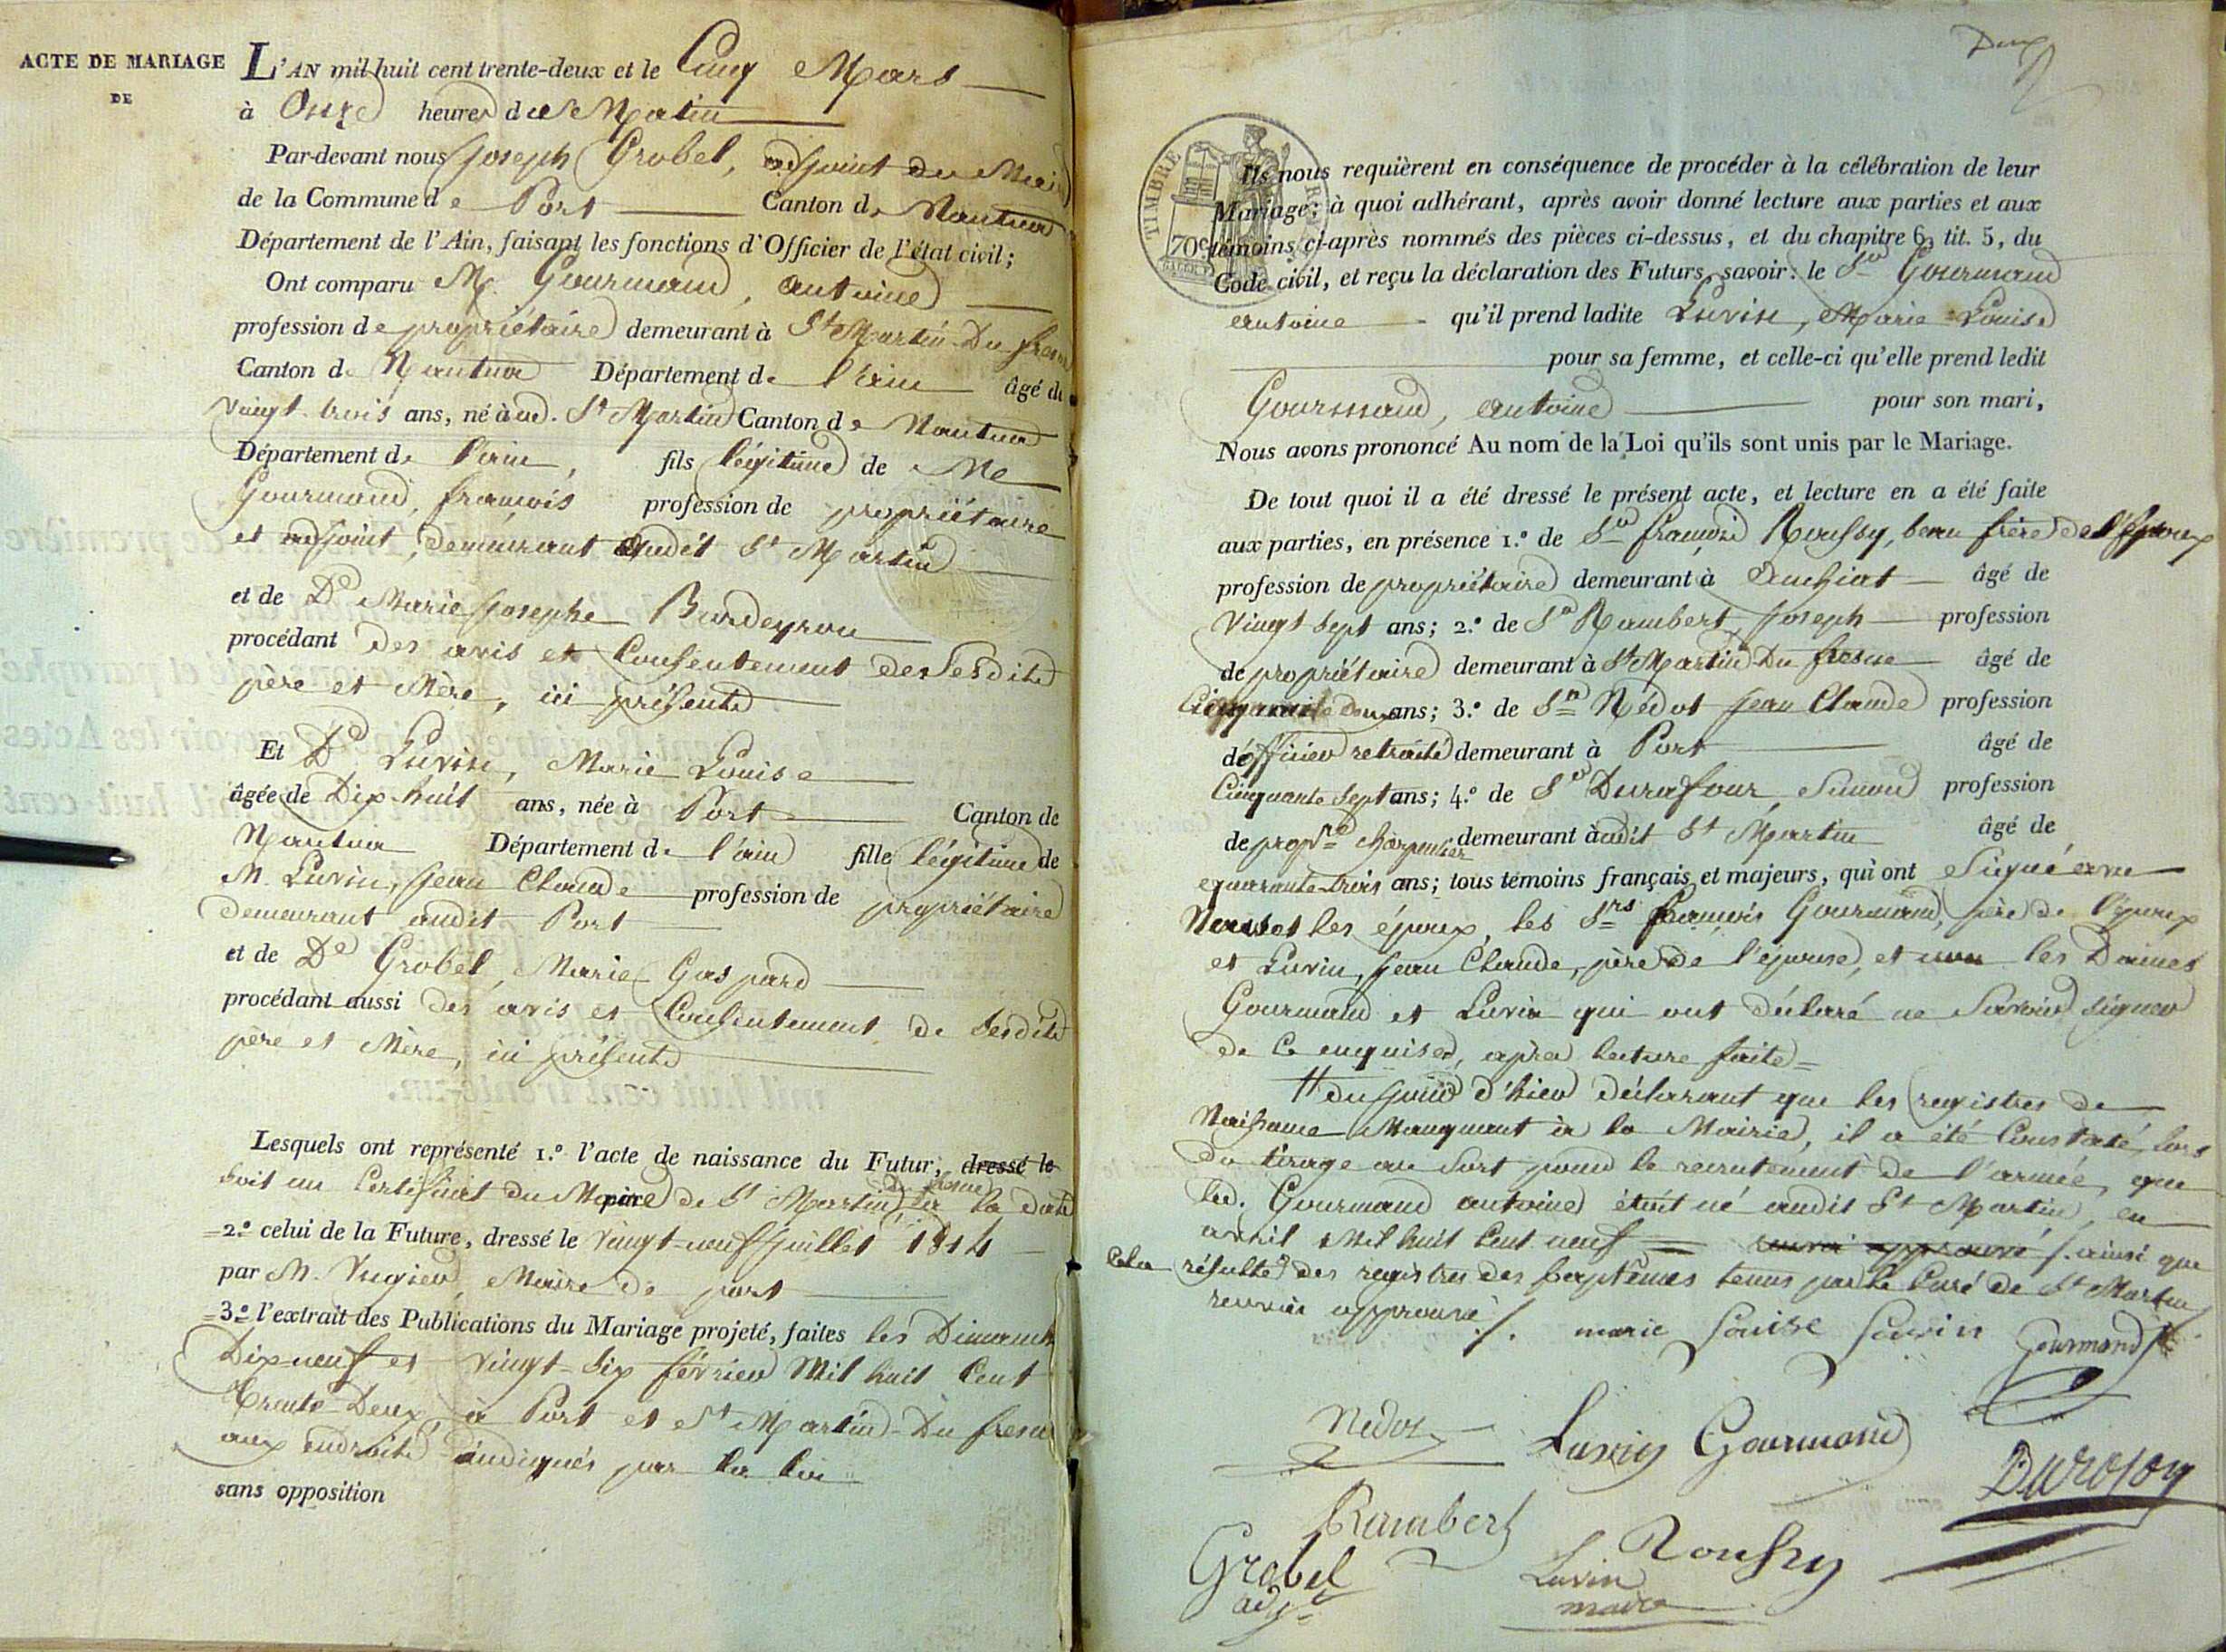 ACTE DE MARIAGE
DE
L'AN mil huit cent trente-deux et le Cinq Mars
à Onze heures du Matin
Par-devant nous Joseph Grobel, adjoint du Maire
de la Commune de Port Canton de Nantua
Département de l'Ain, faisant les fonctions d'Officier de l'état civil;
Ont comparu M. Gourmand, antoine
profession de propriétaire demeurant à St Martin-Du fresne
Canton de Nantua Département de l'ain âgé de
vingt-trois ans, né à ud. St Martin Canton de Nantua
Département de l'ain, fils légitime de Me
Gourmand, françois profession de propriétaire
et adjoint, demeurant audit St Martin
et de De Marie Josephe Burdeyron
procédant des avis et Consentement de Sesdits
père et Mère, ici présents
Et De Luvin, Marie Louise
âgée de Dix-huit ans, née à Port Canton de
Nantua Département de l'ain fille légitime de
M. Luvin, Jean Claude profession de propriétaire
demeurant audit Port
et de De Grobel, Marie Gaspard
procédant aussi des avis et Consentement de Sesdits
père et Mère, ici présents
Lesquels ont représenté 1.º l'acte de naissance du Futur, dressé le
du fresne
soit un Certificat du Maire de St Martin à la date
2.º celui de la Future, dressé le vingt-neuf juillet 1814
par M. Maire de port
3.º l'extrait des Publications du Mariage projeté, faites les Dimanches
Dix neuf et vingt-six février Mil huit Cent
trente-Deux, à Port et St Martin-Du fresne
aux endroits indiqués par la loi
sans opposition
Deux
TIMBRE
70c
Ils nous requièrent en conséquence de procéder à la célébration de leur
Mariage; à quoi adhérant, après avoir donné lecture aux parties et aux
témoins ci-après nommés des pièces ci-dessus, et du chapitre 6, tit. 5, du
Code civil, et reçu la déclaration des Futurs, savoir: le Sr Gourmand
antoine qu'il prend ladite Luvin, Marie Louise
pour sa femme, et celle-ci qu'elle prend ledit
Gourmand, antoine pour son mari,
Nous avons prononcé Au nom de la Loi qu'ils sont unis par le Mariage.
De tout quoi il a été dressé le présent acte, et lecture en a été faite
aux parties, en présence 1.º de Sr françois Roussy, beau frère de l'époux
profession de propriétaire demeurant à Ouchiat âgé de
Vingt sept ans; 2.º de Sr Rambert, Joseph profession
de propriétaire demeurant à St Martin Du fresne âgé de
Cinquante deux ans; 3.º de Sr Nédot Jean Claude profession
d'officier retraité demeurant à Port âgé de
Cinquante sept ans; 4.º de Sr Durafour, Simond profession
de propre charpentier demeurant à udit St Martin âgé de
quarante-trois ans; tous témoins français et majeurs, qui ont Signé avec
Nous et les époux, les Srs françois Gourmand, père de l'époux
et Luvin, Jean Claude, père de l'épouse, et non les Dames
Gourmand et Luvin qui ont déclaré ne Savoir Signer
de Ce enquises, après lecture faite =
du jour d'hier déclarant que les registres de
Naissance Manquant à la Mairie, il a été Constaté, lors
du tirage au Sort pour le recrutement de l'armée, que
led. Gourmand antoine était né audit St Martin, en
avril Mil huit Cent neuf = renvoi approuvé /. ainsi que
Cela résulte des registres des baptêmes tenus par le Curé de St Martin
renvoi approuvé ./. marie Louise Luvin Gourmand
Nedot Luvin Gourmand
Rambert Durofour
Grobel Roussy
adjt Luvin
maire